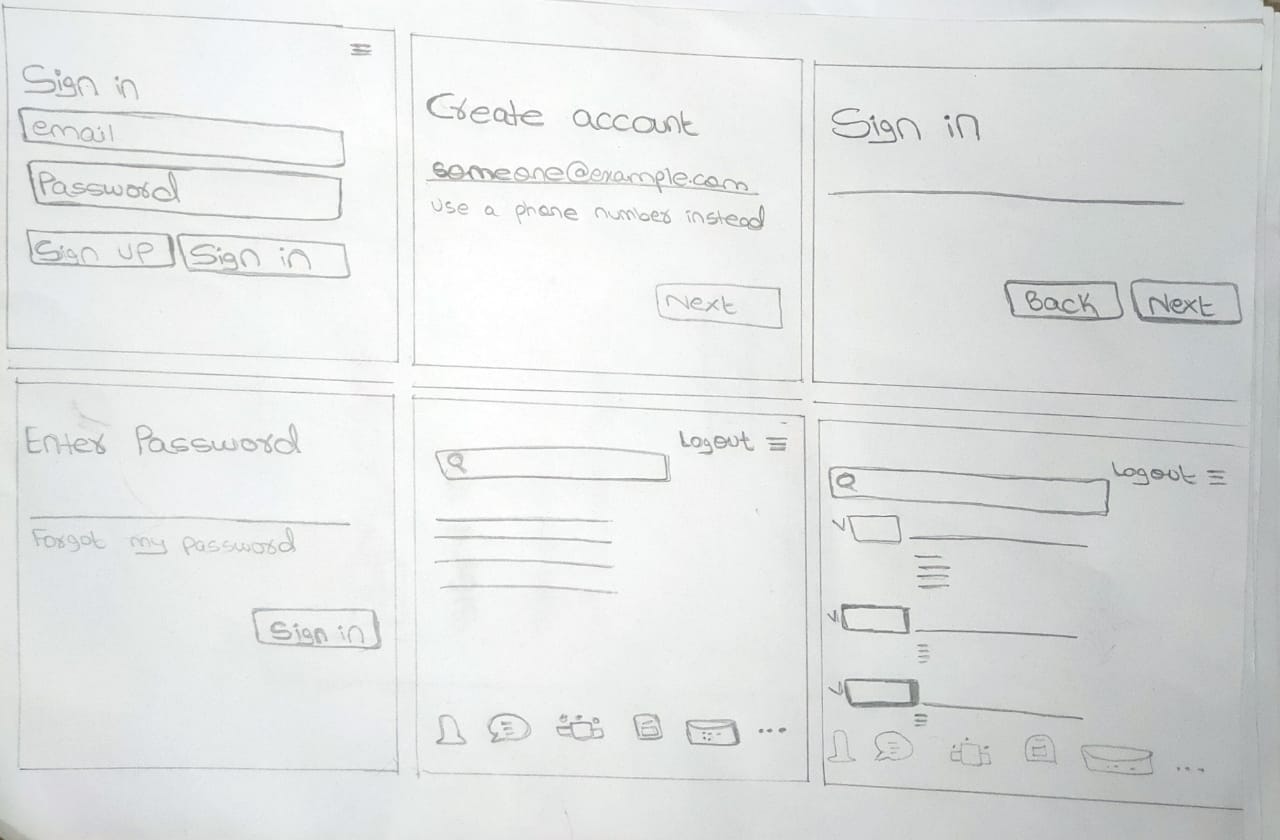 Sign in
email
Password
Sign up Sign in
Create account
someone@example.com
use a phone number instead
Next
Sign in
Back Next
Enter Password
Forgot my password
Sign in
Logout
Logout